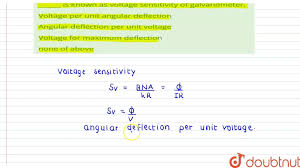 is known as voltage sensitivity of galvanometer.
Voltage per unit angular deflection
Angular deflection per unit voltage
Voltage for maximum deflection
none of above
Voltage sensitivity
Sv = BNA/kR = ϕ/IR
Sv = ϕ/V
angular deflection per unit voltage.
doubtnut